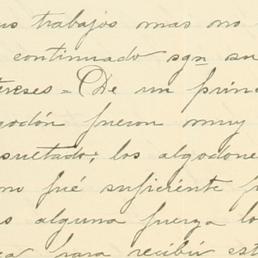 us trabajos mas no
continuado sgn su
tereses = De un princ
godón fueron muy
sultado; los algodone
fué suficiente p
s alguna fuerza lo
para recibir est